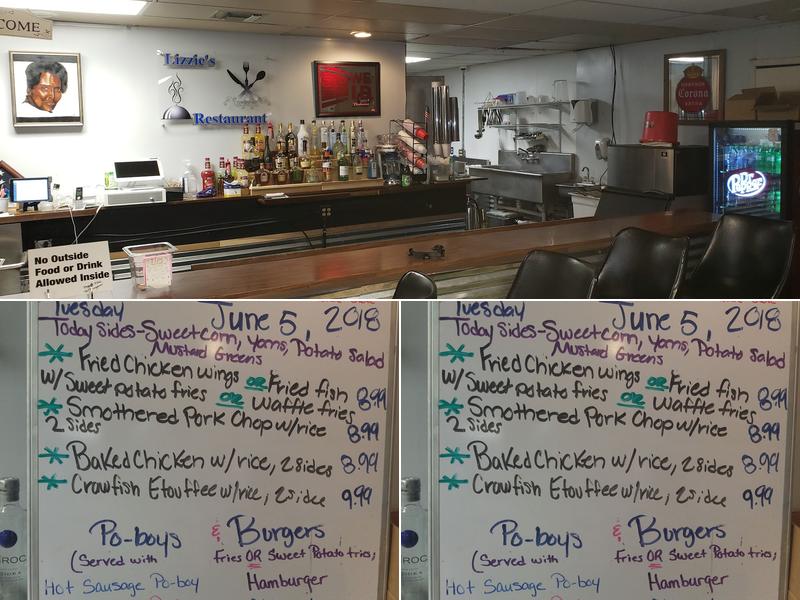 COME
Lizzie's
Restaurant
Corona
Dr Pepper
No Outside
Food or Drink
Allowed Inside
Tuesday June 5, 2018
Today Sides-Sweetcorn, Yams, Potato Salad
Mustard Greens
* Fried Chicken wings OR Fried fish
w/Sweet potato fries OR Waffle fries 8.99
* Smothered Pork Chop w/rice
2 sides 8.99
* Baked Chicken w/rice, 2 sides 8.99
* Crawfish Etouffee w/rice, 2 side 9.99
Po-boys & Burgers
(Served with Fries OR Sweet Potato fries;
Hot Sausage Po-boy Hamburger
ROC
Tuesday June 5, 2018
Today Sides-Sweetcorn, Yams, Potato Salad
Mustard Greens
* Fried Chicken wings OR Fried fish
w/Sweet potato fries OR Waffle fries 8.99
* Smothered Pork Chop w/rice
2 sides 8.99
* Baked Chicken w/rice, 2 sides 8.99
* Crawfish Etouffee w/rice, 2 side 9.99
Po-boys & Burgers
(Served with Fries OR Sweet Potato fries;
Hot Sausage Po-boy Hamburger
ROC